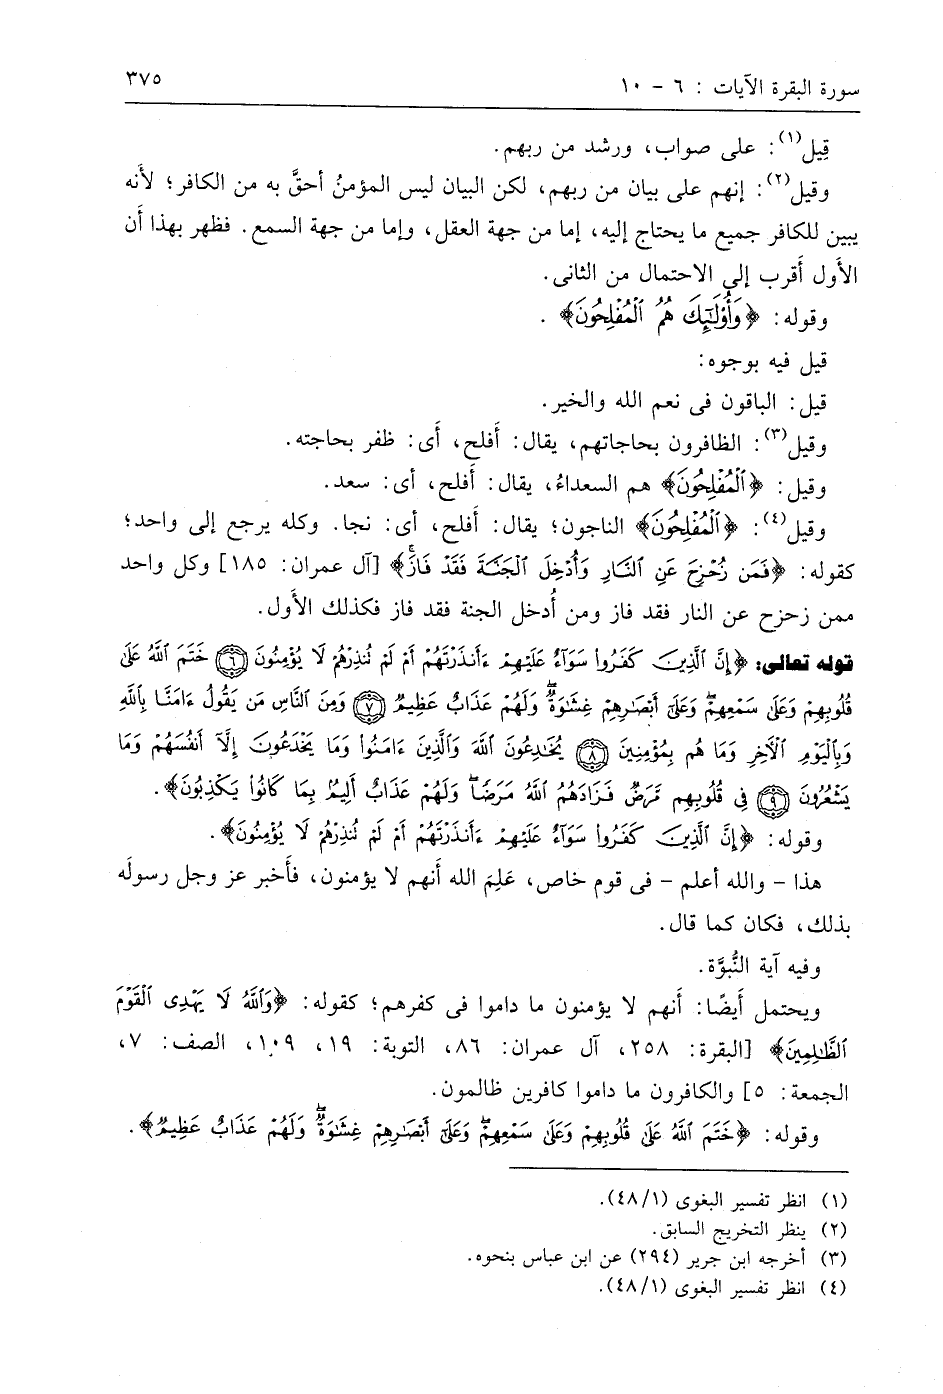 سورة البقرة الآيات : ٦ - ١٠
٣٧٥
قِيل(١): على صواب، ورشد من ربهم.
وقيل(٢): إنهم على بيان من ربهم، لكن البيان ليس المؤمنُ أحقَّ به من الكافر؛ لأَنه
يبين للكافر جميع ما يحتاج إليه، إما من جهة العقل، وإما من جهة السمع. فظهر بهذا أَن
الأول أَقرب إلى الاحتمال من الثانى.
وقوله: ﴿وَأُوْلَٰٓئِكَ هُمُ ٱلْمُفْلِحُونَ﴾ .
قيل فيه بوجوه:
قيل: الباقون فى نعم الله والخير.
وقيل(٣): الظافرون بحاجاتهم، يقال: أَفلح، أَى: ظفر بحاجته.
وقيل: ﴿ٱلْمُفْلِحُونَ﴾ هم السعداءُ، يقال: أَفلح، أى: سعد.
وقيل(٤): ﴿ٱلْمُفْلِحُونَ﴾ الناجون؛ يقال: أَفلح، أى: نجا. وكله يرجع إلى واحد؛
كقوله: ﴿فَمَن زُحْزِحَ عَنِ ٱلنَّارِ وَأُدْخِلَ ٱلْجَنَّةَ فَقَدْ فَازَۗ﴾ [آل عمران: ١٨٥] وكل واحد
ممن زحزح عن النار فقد فاز ومن أُدخل الجنة فقد فاز فكذلك الأَول.
قوله تعالى: ﴿إِنَّ ٱلَّذِينَ كَفَرُواْ سَوَآءٌ عَلَيْهِمْ ءَأَنذَرْتَهُمْ أَمْ لَمْ تُنذِرْهُمْ لَا يُؤْمِنُونَ ۝٦ خَتَمَ ٱللَّهُ عَلَىٰ
قُلُوبِهِمْ وَعَلَىٰ سَمْعِهِمْۖ وَعَلَىٰٓ أَبْصَٰرِهِمْ غِشَٰوَةٌۖ وَلَهُمْ عَذَابٌ عَظِيمٌ ۝٧ وَمِنَ ٱلنَّاسِ مَن يَقُولُ ءَامَنَّا بِٱللَّهِ
وَبِٱلْيَوْمِ ٱلْأَخِرِ وَمَا هُم بِمُؤْمِنِينَ ۝٨ يُخَٰدِعُونَ ٱللَّهَ وَٱلَّذِينَ ءَامَنُواْ وَمَا يَخْدَعُونَ إِلَّآ أَنفُسَهُمْ وَمَا
يَشْعُرُونَ ۝٩ فِى قُلُوبِهِم مَّرَضٌ فَزَادَهُمُ ٱللَّهُ مَرَضًاۖ وَلَهُمْ عَذَابٌ أَلِيمٌۢ بِمَا كَانُواْ يَكْذِبُونَ﴾.
وقوله: ﴿إِنَّ ٱلَّذِينَ كَفَرُواْ سَوَآءٌ عَلَيْهِمْ ءَأَنذَرْتَهُمْ أَمْ لَمْ تُنذِرْهُمْ لَا يُؤْمِنُونَ﴾.
هذا - والله أعلم - فى قوم خاص، عَلِمَ الله أَنهم لا يؤمنون، فأَخبر عز وجل رسولَه
بذلك، فكان كما قال.
وفيه آية النُّبوَّة.
ويحتمل أَيضًا: أَنهم لا يؤمنون ما داموا فى كفرهم؛ كقوله: ﴿وَٱللَّهُ لَا يَهْدِى ٱلْقَوْمَ
ٱلظَّٰلِمِينَ﴾ [البقرة: ٢٥٨، آل عمران: ٨٦، التوبة: ١٩، ١٠٩، الصف: ٧،
الجمعة: ٥] والكافرون ما داموا كافرين ظالمون.
وقوله: ﴿خَتَمَ ٱللَّهُ عَلَىٰ قُلُوبِهِمْ وَعَلَىٰ سَمْعِهِمْۖ وَعَلَىٰٓ أَبْصَٰرِهِمْ غِشَٰوَةٌۖ وَلَهُمْ عَذَابٌ عَظِيمٌ﴾.
(١) انظر تفسير البغوى (٤٨/١).
(٢) ينظر التخريج السابق.
(٣) أخرجه ابن جرير (٢٩٤) عن ابن عباس بنحوه.
(٤) انظر تفسير البغوى (٤٨/١).